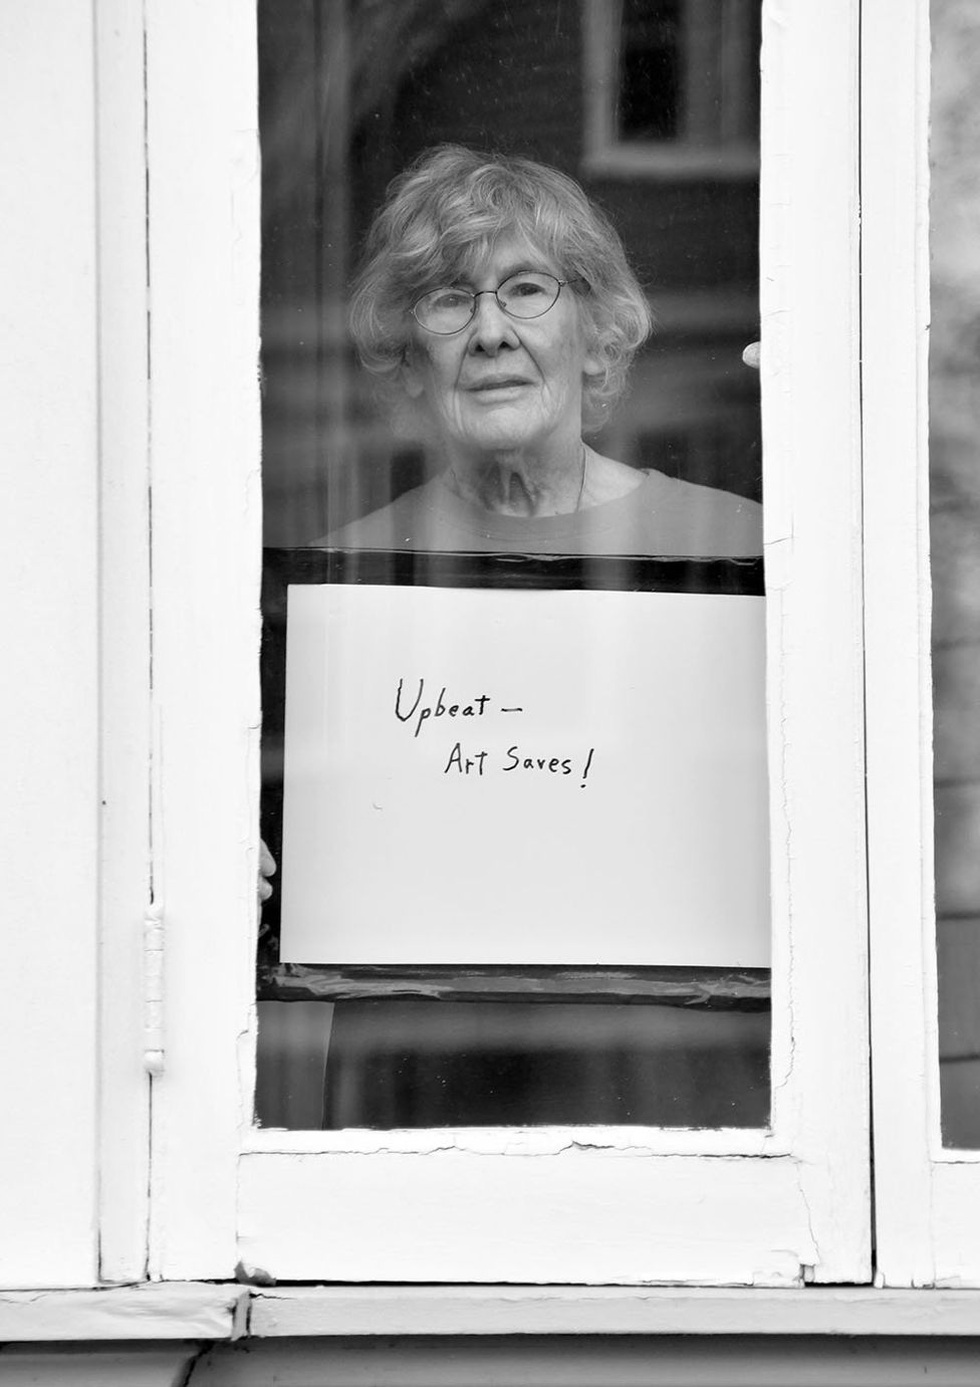 Upbeat –
Art Saves!